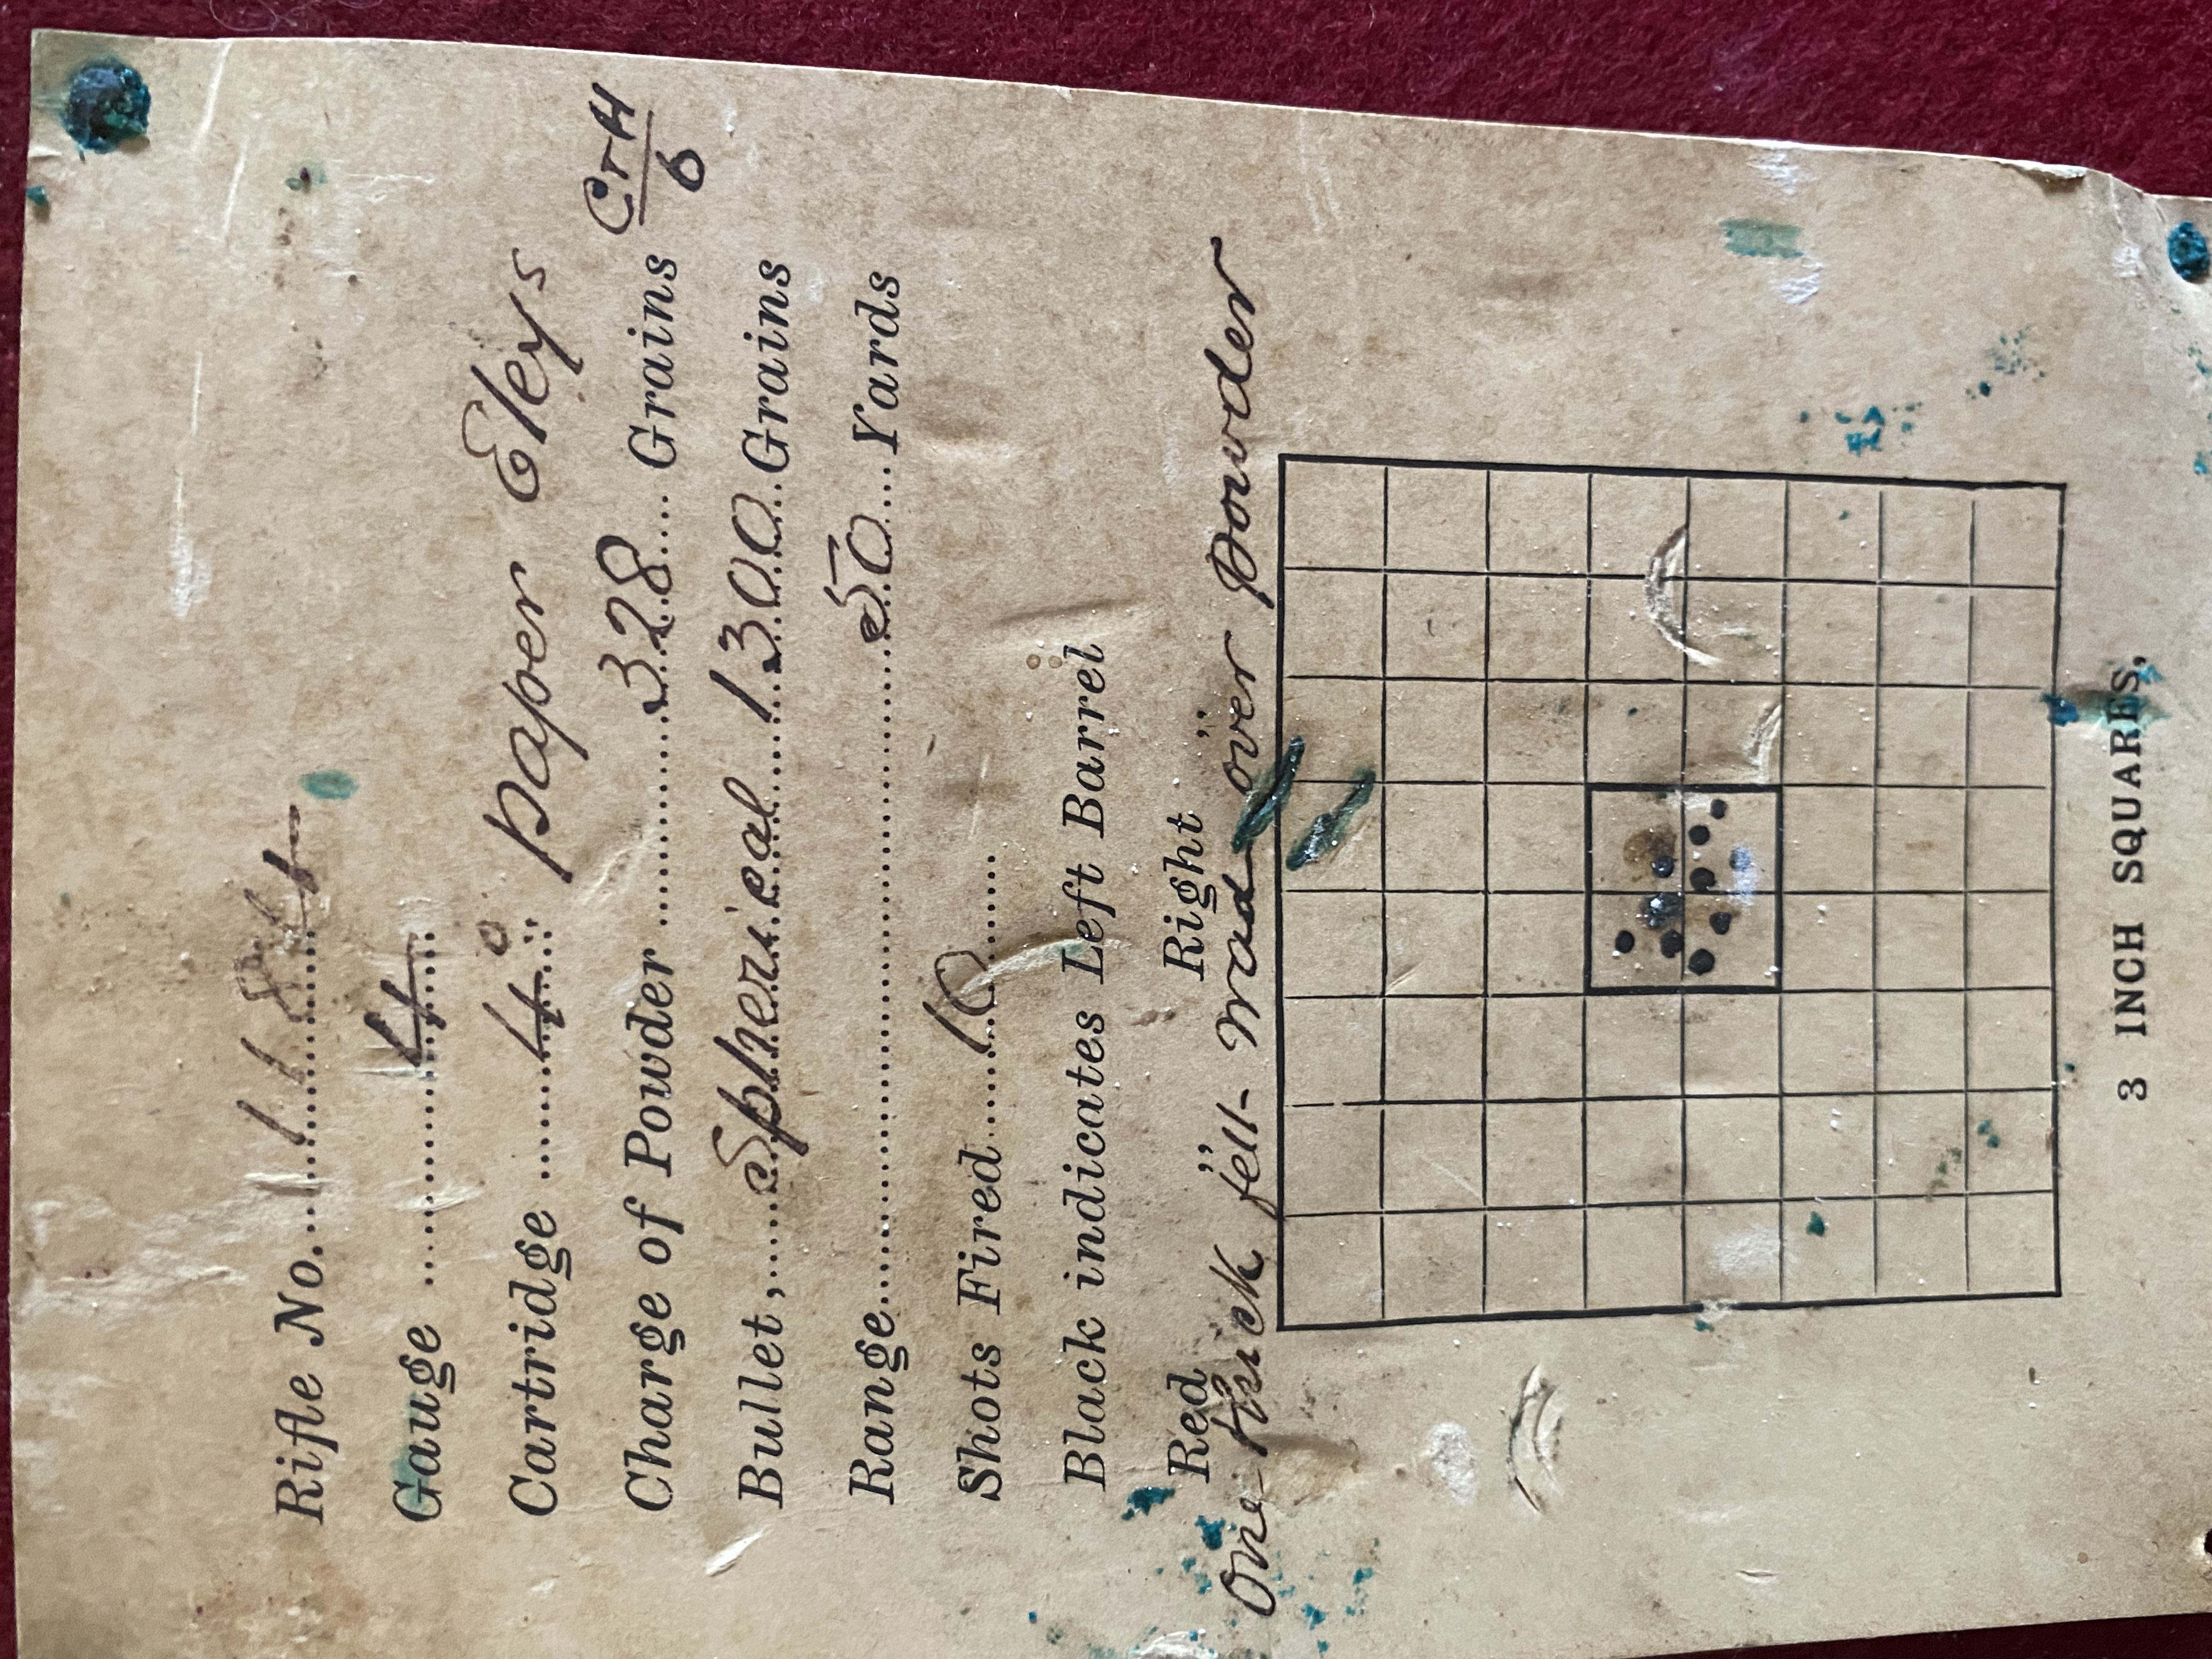 Rifle No. 1184
Gauge 4
Cartridge 4° paper Eleys
Charge of Powder 328 Grains C&H 6
Bullet, Spherical 1300 Grains
Range 50 Yards
Shots Fired 10
Black indicates Left Barrel
Red " Right "
One thick felt wad over powder
3 INCH SQUARES.